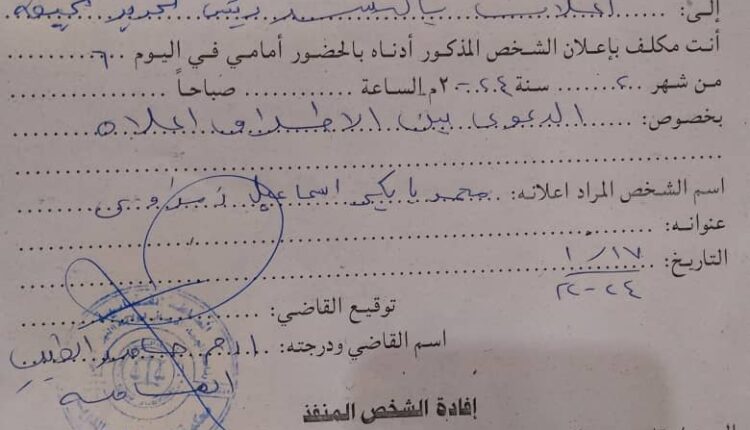 إلى: اعلان بالنشر
أنت مكلف بإعلان الشخص المذكور أدناه بالحضور أمامي في اليوم ٦
من شهر ٢ سنة ٢٠٢٤م الساعة صباحاً
بخصوص: الدعوى بين الاطراف اعلاه
اسم الشخص المراد اعلانه: محمد بابكر اسماعيل
عنوانه:
التاريخ: ١/١٧
٢٠٢٤
توقيع القاضي:
اسم القاضي ودرجته: الطيب
العامة
إفادة الشخص المنفذ